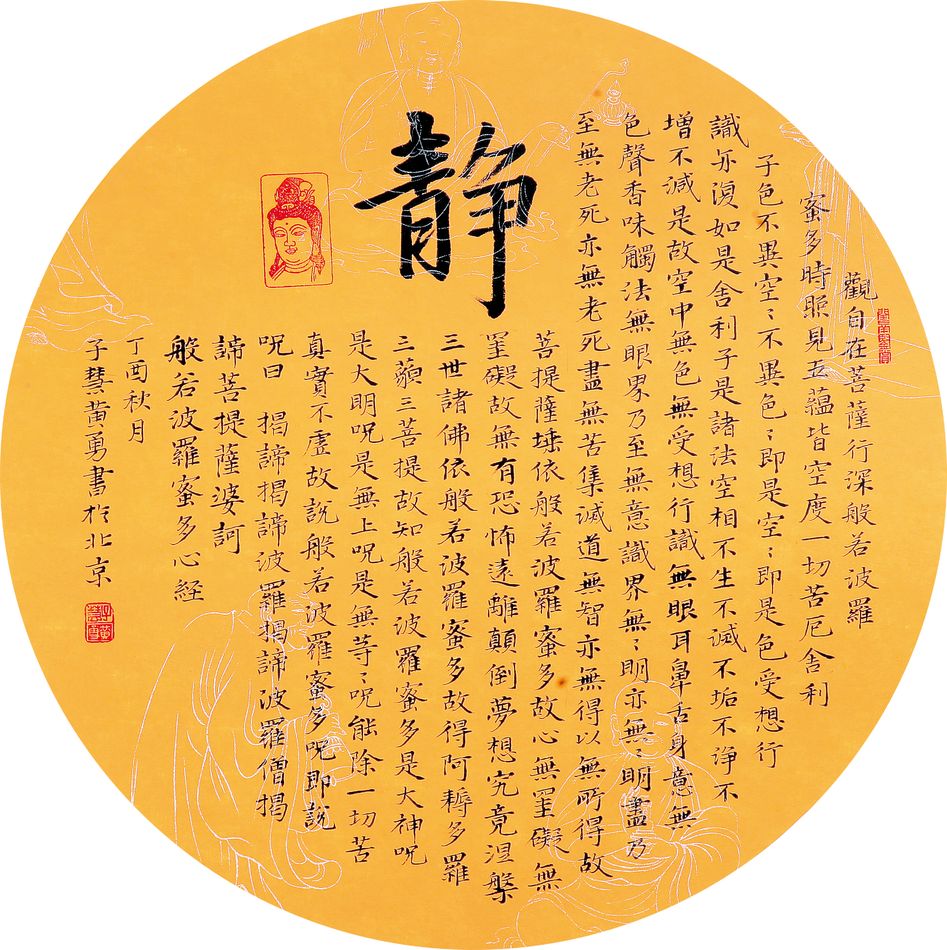 静
觀自在菩薩行深般若波羅
蜜多時照見五蘊皆空度一切苦厄舍利
子色不異空〻不異色〻即是空〻即是色受想行
識亦復如是舍利子是諸法空相不生不滅不垢不淨不
增不減是故空中無色無受想行識無眼耳鼻舌身意無
色聲香味觸法無眼界乃至無意識界無〻明亦無〻明盡乃
至無老死亦無老死盡無苦集滅道無智亦無得以無所得故
菩提薩埵依般若波羅蜜多故心無罣礙無
罣礙故無有恐怖遠離顛倒夢想究竟涅槃
三世諸佛依般若波羅蜜多故得阿耨多羅
三藐三菩提故知般若波羅蜜多是大神呪
是大明呪是無上呪是無等〻呪能除一切苦
真實不虛故說般若波羅蜜多呪即說
呪曰 揭諦揭諦波羅揭諦波羅僧揭
諦菩提薩婆訶
般若波羅蜜多心経
丁酉秋月
子慧黃勇書於北京